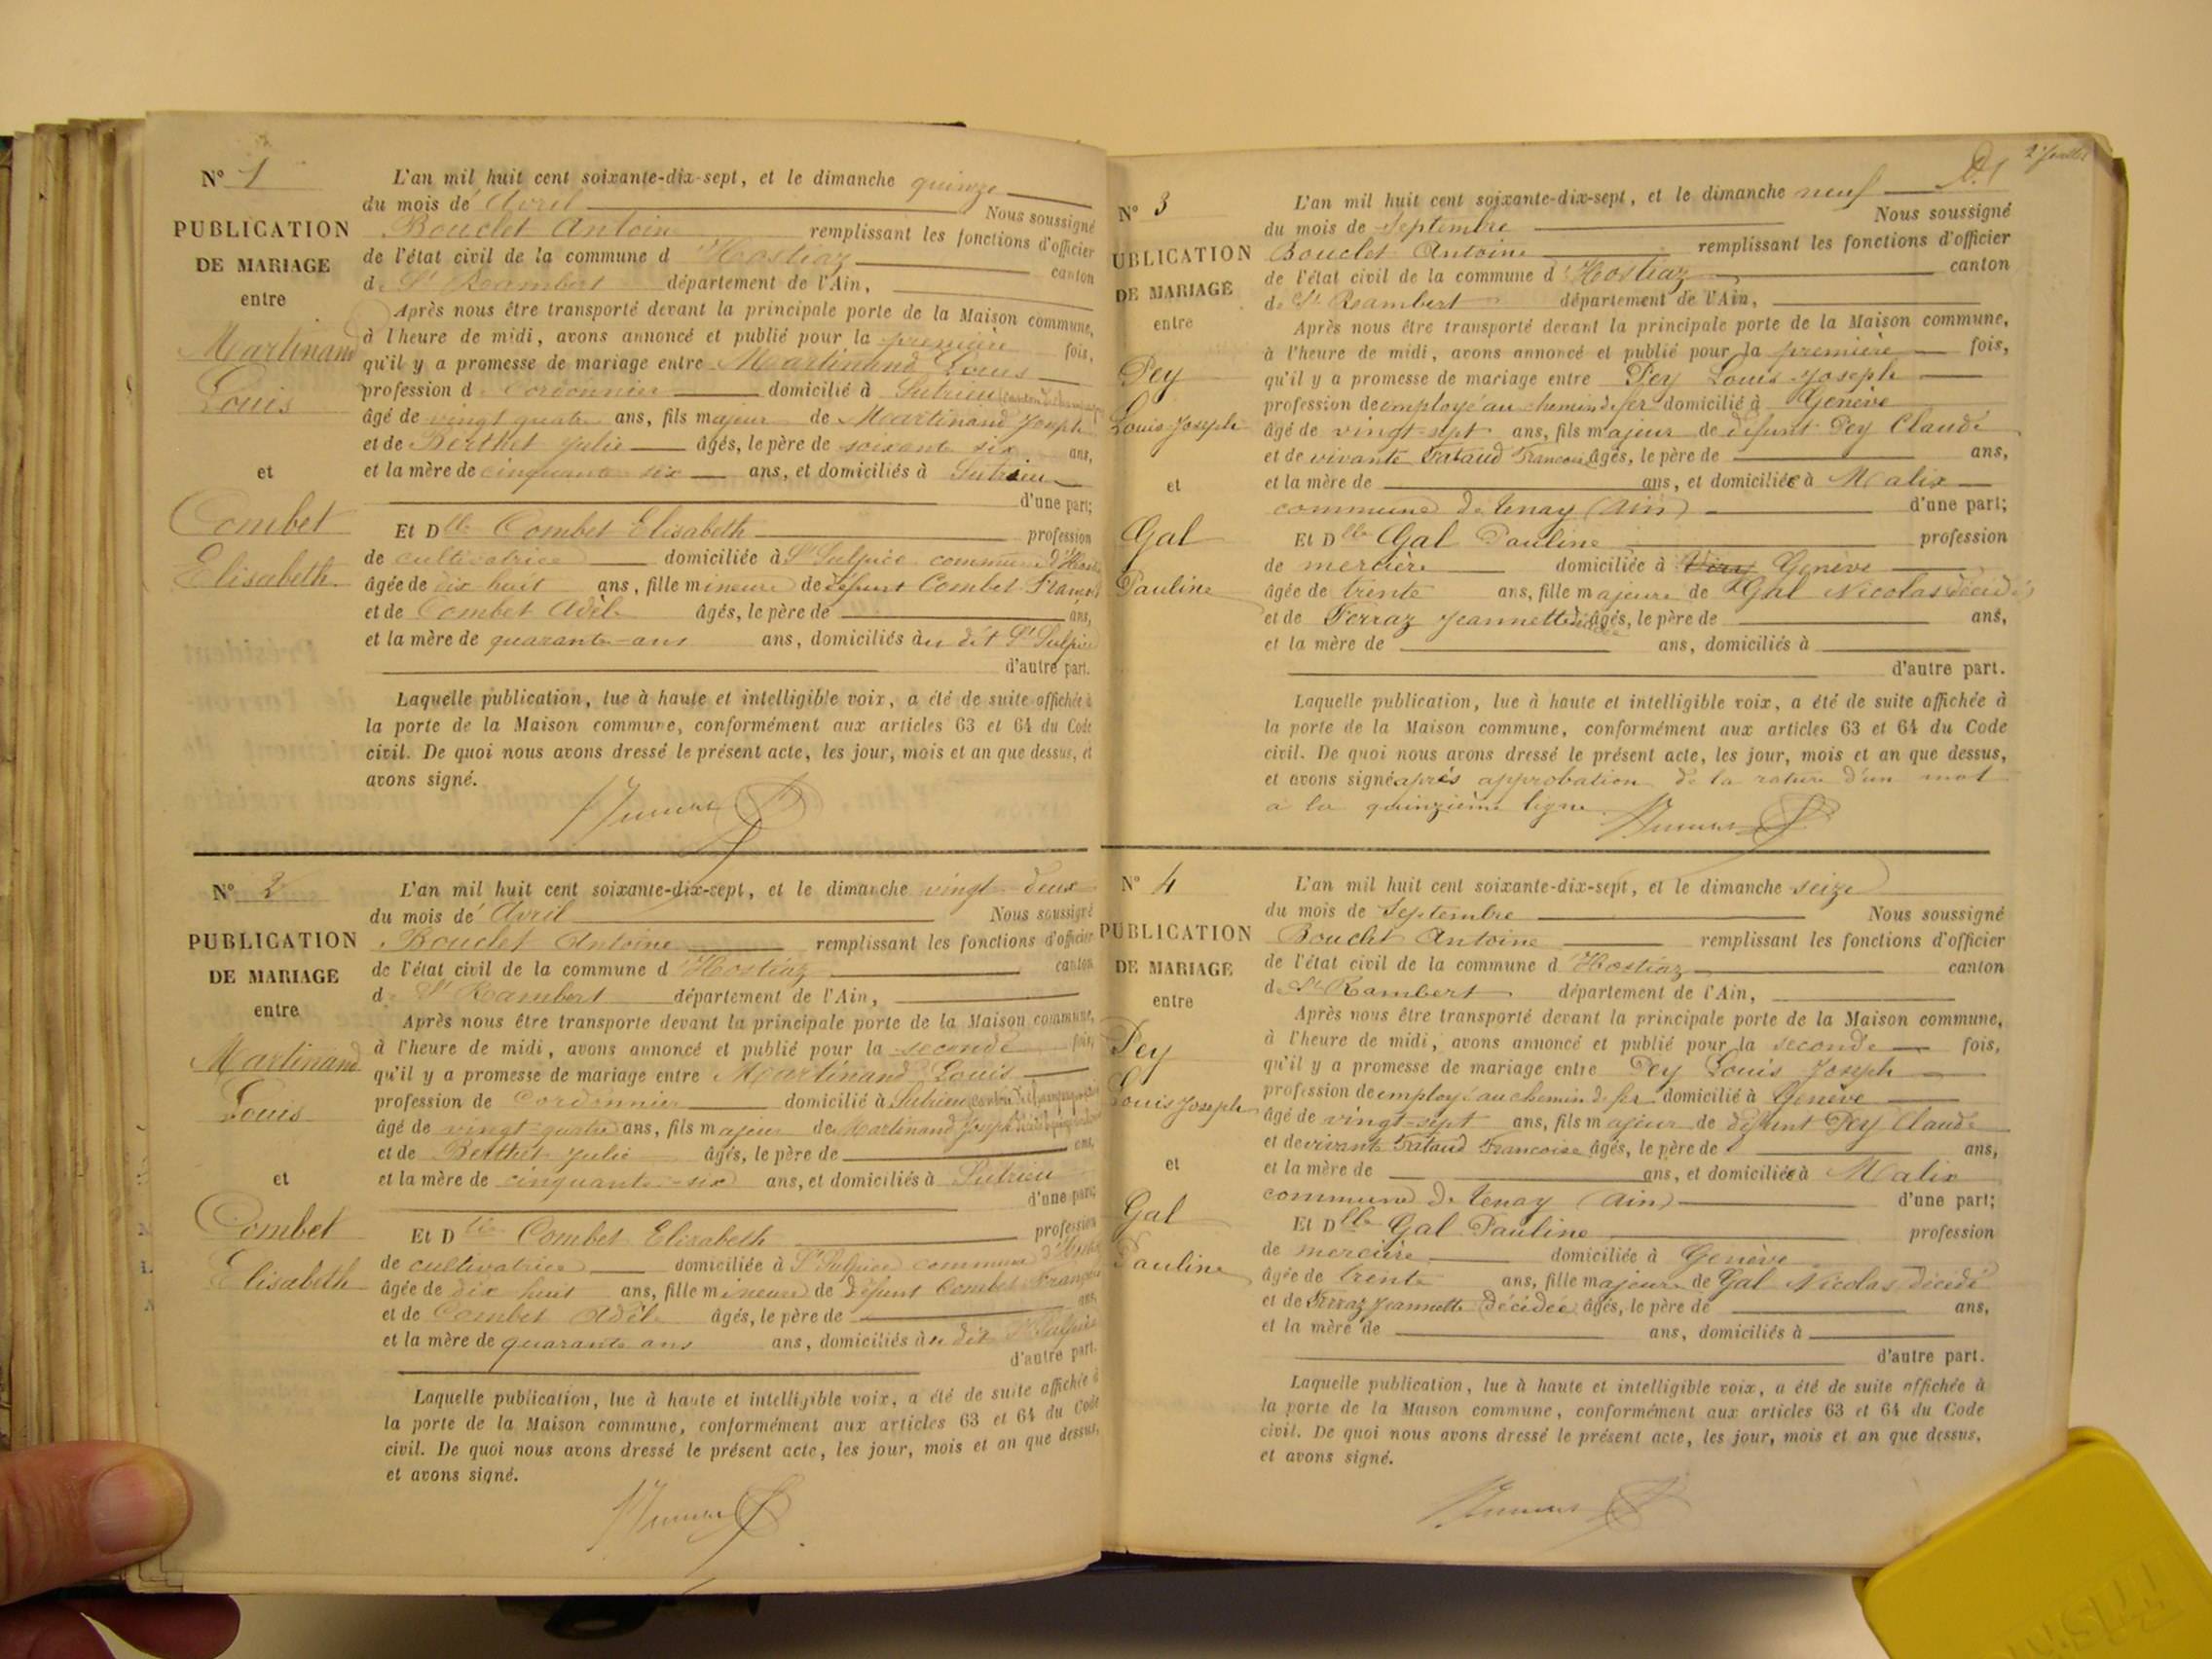 N° 1
PUBLICATION
DE MARIAGE
entre
Martinand
Louis
et
Combet
Elisabeth
L'an mil huit cent soixante-dix-sept, et le dimanche quinze
du mois de Avril Nous soussigné
Bouclet Antoine remplissant les fonctions d'officier
de l'état civil de la commune d'Hostiaz canton
de St Rambert département de l'Ain,
Après nous être transporté devant la principale porte de la Maison commune,
à l'heure de midi, avons annoncé et publié pour la première fois,
qu'il y a promesse de mariage entre Martinand Louis
profession de Cordonnier domicilié à Sutrieu
âgé de vingt quatre ans, fils majeur de Martinand Joseph
et de Berthet Julie âgés, le père de soixante six ans,
et la mère de cinquante six ans, et domiciliés à Sutrieu
d'une part;
Et Dlle Combet Elisabeth profession
de cultivatrice domiciliée à St Sulpice commune d'Hostiaz
âgée de dix huit ans, fille mineure de défunt Combet François
et de Combet Adèle âgés, le père de ans,
et la mère de quarante ans ans, domiciliés au dit St Sulpice
d'autre part.
Laquelle publication, lue à haute et intelligible voix, a été de suite affichée à
la porte de la Maison commune, conformément aux articles 63 et 64 du Code
civil. De quoi nous avons dressé le présent acte, les jour, mois et an que dessus, et
avons signé.
N° 2
PUBLICATION
DE MARIAGE
entre
Martinand
Louis
et
Combet
Elisabeth
L'an mil huit cent soixante-dix-sept, et le dimanche vingt deux
du mois de Avril Nous soussigné
Bouclet Antoine remplissant les fonctions d'officier
de l'état civil de la commune d'Hostiaz canton
de St Rambert département de l'Ain,
Après nous être transporté devant la principale porte de la Maison commune,
à l'heure de midi, avons annoncé et publié pour la seconde fois,
qu'il y a promesse de mariage entre Martinand Louis
profession de Cordonnier domicilié à Sutrieu
âgé de vingt-quatre ans, fils majeur de Martinand Joseph
et de Berthet Julie âgés, le père de ans,
et la mère de cinquante-six ans, et domiciliés à Sutrieu
d'une part;
Et Dlle Combet Elisabeth profession
de cultivatrice domiciliée à St Sulpice commune d'Hostiaz
âgée de dix huit ans, fille mineure de défunt Combet François
et de Combet Adèle âgés, le père de ans,
et la mère de quarante ans ans, domiciliés au dit St Sulpice
d'autre part.
Laquelle publication, lue à haute et intelligible voix, a été de suite affichée à
la porte de la Maison commune, conformément aux articles 63 et 64 du Code
civil. De quoi nous avons dressé le présent acte, les jour, mois et an que dessus,
et avons signé.
2e feuillet
N° 3
UBLICATION
DE MARIAGE
entre
Pey
Louis Joseph
et
Gal
Pauline
L'an mil huit cent soixante-dix-sept, et le dimanche neuf
du mois de Septembre Nous soussigné
Bouclet Antoine remplissant les fonctions d'officier
de l'état civil de la commune d'Hostiaz canton
de St Rambert département de l'Ain,
Après nous être transporté devant la principale porte de la Maison commune,
à l'heure de midi, avons annoncé et publié pour la première fois,
qu'il y a promesse de mariage entre Pey Louis Joseph
profession de employé au chemin de fer domicilié à Genève
âgé de vingt-sept ans, fils majeur de défunt Pey Claude
et de vivante Tataud Francoise âgés, le père de ans,
et la mère de ans, et domiciliée à Malix
commune de Tenay (Ain) d'une part;
Et Dlle Gal Pauline profession
de mercière domiciliée à Genève
âgée de trente ans, fille majeure de Gal Nicolas décédé
et de Ferraz Jeannette décédée âgés, le père de ans,
et la mère de ans, domiciliés à
d'autre part.
Laquelle publication, lue à haute et intelligible voix, a été de suite affichée à
la porte de la Maison commune, conformément aux articles 63 et 64 du Code
civil. De quoi nous avons dressé le présent acte, les jour, mois et an que dessus,
et avons signé après approbation de la rature d'un mot
a la quinzième ligne
N° 4
PUBLICATION
DE MARIAGE
entre
Pey
Louis Joseph
et
Gal
Pauline
L'an mil huit cent soixante-dix-sept, et le dimanche seize
du mois de Septembre Nous soussigné
Bouclet Antoine remplissant les fonctions d'officier
de l'état civil de la commune d'Hostiaz canton
de St Rambert département de l'Ain,
Après nous être transporté devant la principale porte de la Maison commune,
à l'heure de midi, avons annoncé et publié pour la seconde fois,
qu'il y a promesse de mariage entre Pey Louis Joseph
profession de employé au chemin de fer domicilié à Genève
âgé de vingt-sept ans, fils majeur de défunt Pey Claude
et de vivante Tataud Francoise âgés, le père de ans,
et la mère de ans, et domiciliée à Malix
commune de Tenay (Ain) d'une part;
Et Dlle Gal Pauline profession
de mercière domiciliée à Genève
âgée de trente ans, fille majeure de Gal Nicolas décédé
et de Ferraz Jeannette décédée âgés, le père de ans,
et la mère de ans, domiciliés à
d'autre part.
Laquelle publication, lue à haute et intelligible voix, a été de suite affichée à
la porte de la Maison commune, conformément aux articles 63 et 64 du Code
civil. De quoi nous avons dressé le présent acte, les jour, mois et an que dessus,
et avons signé.